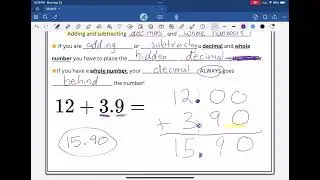 Adding and subtracting decimals and whole numbers!
If you are adding or subtracting a decimal and whole
number you have to place the hidden decimal
If you have a whole number, your decimal ALWAYS goes
behind the number!
12 + 3.9 =
12.00
+ 3.90
15.90
15.90